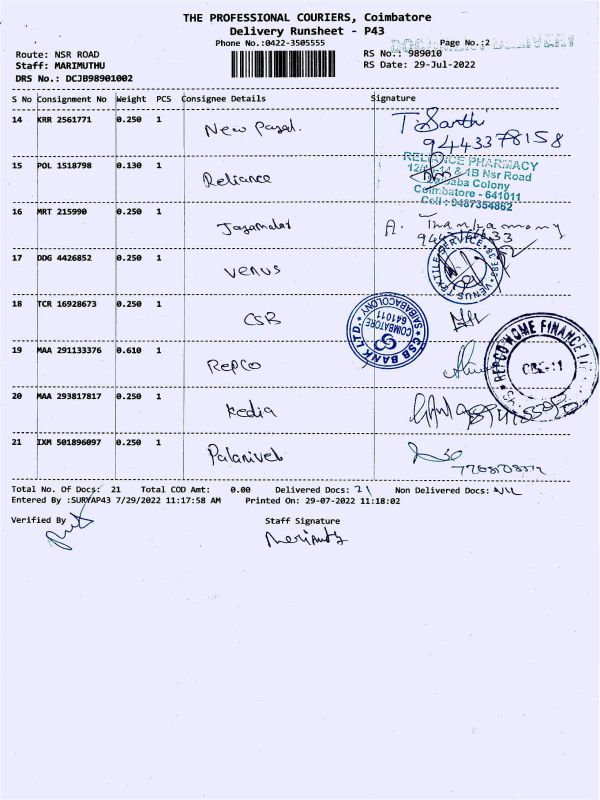 THE PROFESSIONAL COURIERS, Coimbatore
Delivery Runsheet - P43
Phone No.:0422-3505555
Page No.:2
DOCUMENT DELIVERY
Route: NSR ROAD
RS No.: 989010
Staff: MARIMUTHU
RS Date: 29-Jul-2022
DRS No.: DCJB98901002
S No Consignment No Weight PCS Consignee Details Signature
14 KRR 2561771 0.250 1 New Pazal. T. Sarthi
9443378158
15 POL 1518798 0.130 1 Reliance
RELIANCE PHARMACY
& 1B Nsr Road
Saibaba Colony
Coimbatore - 641011
Cell : 9487354862
16 MRT 215990 0.250 1 Jayamalar A. Thankamomy
17 DDG 4426852 0.250 1 Venus
VENUS TEXTILE SERVICE
18 TCR 16928673 0.250 1 CSB
CSB BANK LTD.
SAIBABACOLONY
COIMBATORE
641011
19 MAA 291133376 0.610 1 Repco
REPCO HOME FINANCE LTD
CBE-11
20 MAA 293817817 0.250 1 Kedia
21 IXM 501896097 0.250 1 Palanivel
Total No. Of Docs: 21 Total COD Amt: 0.00 Delivered Docs: 21 Non Delivered Docs: NIL
Entered By :SURYAP43 7/29/2022 11:17:58 AM Printed On: 29-07-2022 11:18:02
Verified By Staff Signature